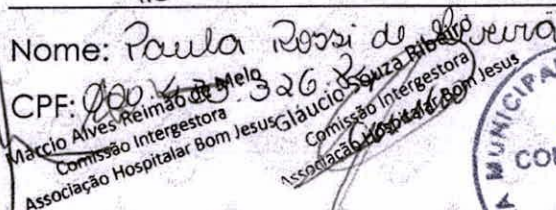 Nome: Paula Rossi de Oliveira
CPF: 326.
Marcio Alves Reimão de Melo
Comissão Intergestora
Associação Hospitalar Bom Jesus
Gláucio Souza Ribeiro
Comissão Intergestora
Associação Hospitalar Bom Jesus
MUNICIPAL
CO